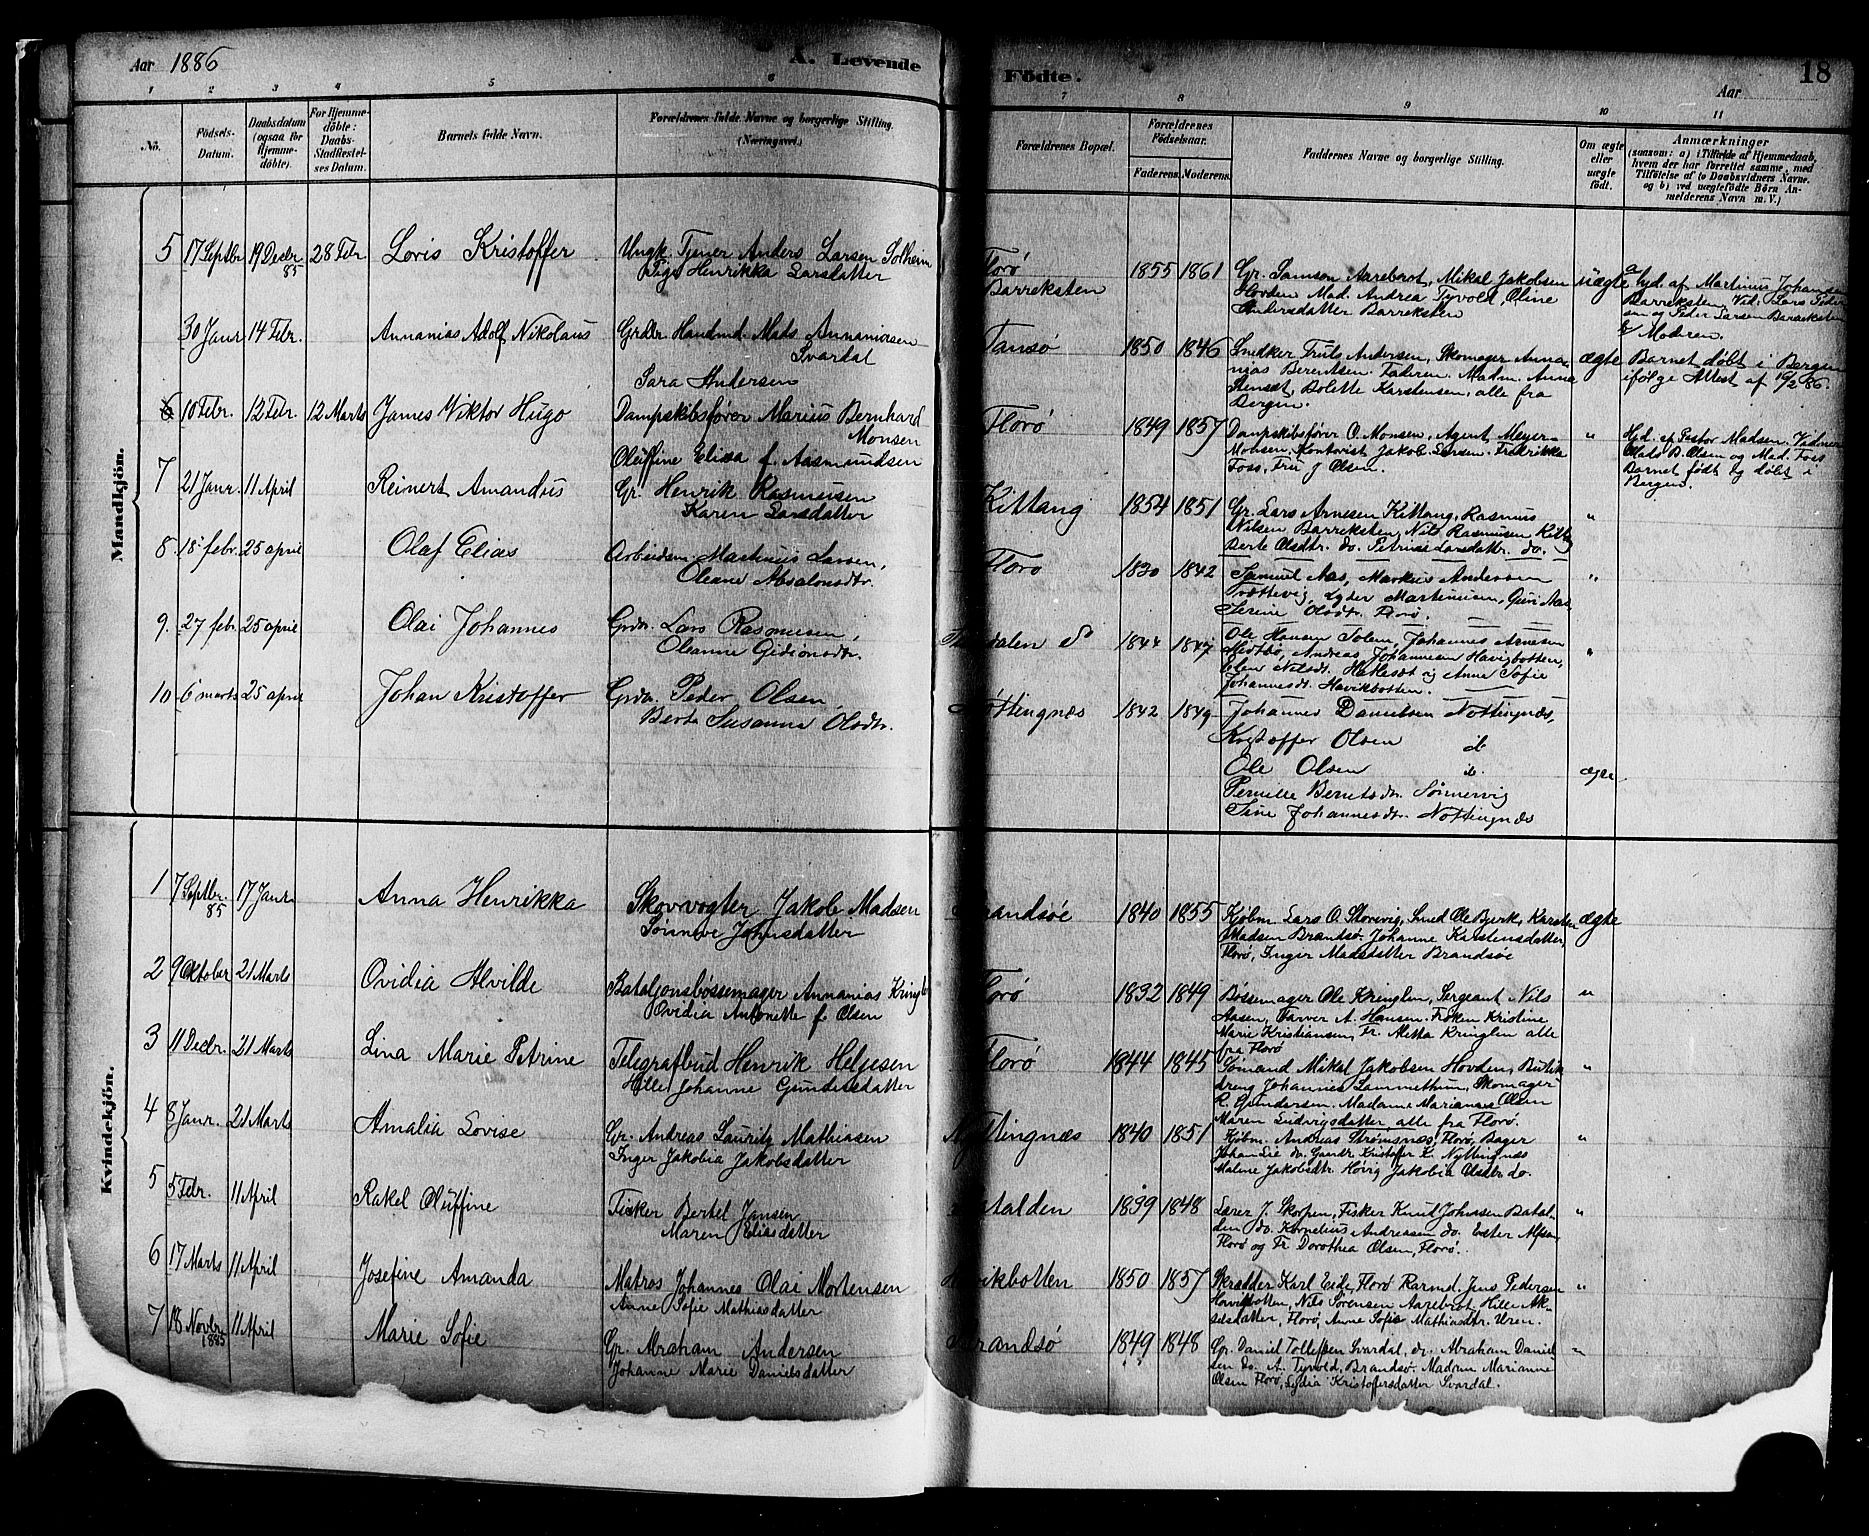 Aar 1886
A. Levende
Födte.
Aar
18
1 2 3 4 5 6 7 8 9 10 11
No.
Födsels-
Datum.
Daabsdatum
(ogsaa for
Hjemme-
döbte).
For Hjemme-
döbte:
Daabs-
Stadfæstel-
ses Datum.
Barnets fulde Navn.
Forældrenes fulde Navne og borgerlige Stilling.
(Næringsvei.)
Forældrenes Bopæl.
Forældrenes
Födselsaar.
Faderens. Moderens.
Faddernes Navne og borgerlige Stilling.
Om ægte
eller
uægte
födt.
Anmærkninger
(saasom: a) i Tilfælde af Hjemmedaab,
hvem der har forrettet samme, med
Tilföielse af to Daabsvidners Navne.
og b) ved uægtefödte Börn An-
melderens Navn m. V.)
Mandkjön.
5 17 Septbr 19 Decbr 28 Febr. Lovis Kristoffer Ungk. Tjener Anders Larsen Solheim
85
Pige Henrikka Larsdatter
Florø 1855 1861 Gr. Samson Aarebrot, Mikal Jakobsen uægte
Barreksten Hovden Mad. Andrea Tyvold Oline
Andersdatter Barreksten
a/ Hjd. af Martinus Johansen
Barreksten, Vid: Lars Peder
sen og Peder Larsen Barreksten
b/ Moderen.
30 Janr 14 Febr. Annanias Adolf Nikolaus Grdbr. Handmd. Mads Annaniasen
Svardal
Sara Andersen
Tansø 1850 1846 Snedker Truls Andersen, Skomager Anna ægte
nias Berentsen Faderen. Madm. Anna
Stensæt, Bolette Karstensen, alle fra
Bergen.
Barnet døbt i Bergen
ifølge Attest af 19/2 86.
6 10 Febr. 12 Febr. 12 Marts James Viktor Hugo Dampskibsfører Marius Bernhard
Monsen
Oleffine Elissa f. Aasmundsen
Florø 1849 1857 Dampskibsfører O. Monsen, Agent Meyer "
Monsen, Kontorist Jakob Larsen. Fredrikke
Foss, Fru J Olsen.
Hjd. af Pastor Madsen. Vidner
Mads B. Olsen og Mad. Foss
Barnet født og døbt i
Bergen.
7 21 Janr. 11 April Reinert Amandus Gr. Henrik Rasmussen
Karen Larsdatter
Kittang 1854 1851 Gr. Lars Arnesen Kittang, Rasmus "
Nilsen Barreksten, Nils Rasmusen Kittg
Berte Olsdtr. do. Petrine Larsdattr. do.
8 18 febr. 25 april Olaf Elias Arbeidsm. Martinus Larsen,
Oleane Absalonsdtr.
Florø 1830 1842 Samuel Aas, Markus Andersen "
Trættevig, Lyder Martinusen, Guri Aas
Serine Olsdtr. Florø.
9. 27 febr. 25 april Olai Johannes Grdbr. Lars Rasmusen,
Oleanne Gidionsdtr.
dalen S 1844 1847 Ole Hansen Solem, Johannes Arnesen "
Midtbø, Andreas Johannesen Havigbotten,
Elen Nilsdt. Hatlesæt og Anne Sofie
Johannesdt. Havikbotten.
10 6 marts 25 april Johan Kristoffer Grdbr. Peder Olsen,
Berte Susanne Olsdtr.
Nøttingnæs 1842 1849 Johannes Danielsen Nøttingnæs,
Kristoffer Olsen ib
Ole Olsen ib. ægte
Pernille Berntsdtr. Sønnervig
Sine Johannesdtr. Nøttingnæs
Kvindekjön.
1 7 Septbr. 17 Janr Anna Henrikka Skovvogter Jakob Madsen
85
Sønneve Johnsdatter
Brandsøe 1840 1855 Kjøbm Lars O. Storevig, Smed Ole Bjerk, Karsten ægte
Madsen Brandsø. Johanne Karstensdatter,
Florø, Inger Madsdatter Brandsøe
2 9 Oktober 21 Marts Ovidia Alvilde Bataljonsbøssemager Annanias Kringlen
Ovidia Antonette f. Olsen
Florø 1832 1849 Bøssemager Ole Kringlen, Sergeant Nils "
Aasen, Farver A. Hansen. Frøken Kristine
Marie Kristiansen, Fr. Aletta Kringlen alle
fra Florø
3 11 Decbr. 21 Marts Lina Marie Petrine Telegrafbud Henrik Helgesen
Hille Johanne Gundersdatter
Florø 1844 1845 Sømand Mikal Jakobsen Hovden, Butik "
dreng Johannes Lammethun, Skomager
R. Gundersen. Madame Mariane Olsen
Maren Ludvigsdatter, alle fra Florø.
4 8 Janr. 21 Marts Amalia Lovise Gr. Andreas Lauritz Mathiasen
Inger Jakobia Jakobsdatter
Nyttingnæs 1840 1851 Kjøbm. Andreas Strømsnæs, Florø, Bager "
Johan Lie do. Gaardr Kristoffer K. Nyttingnæs
Malene Jakobsdtr. Høvig, Jakobia Olsdtr do.
5 5 Febr. 11 April Rakel Oluffine Fisker Bertel Jansen
Maren Eliasdatter
Batalden 1839 1848 Lærer J. Skorpen, Fisker Knut Johnsen Batal- "
den do. Kornelius Andreasen do. Ester Alfsen
Florø og Fr. Dorothea Olsen, Florø.
6 17 Marts 11 April Josefine Amanda Matros Johannes Olai Mortensen
Anne Sofie Mathiasdatter
Havikbotten 1850 1857 Skrædder Karl Eide, Florø Rormd. Jens Pedersen "
Havikbotten, Nils Sørensen Aarebrot. Hille Ak-
selsdatter, Florø, Anne Sofie Mathiasdtr. Uren.
7 18 Novbr 11 April Marie Sofie Gr. Abraham Andersen
1885
Johanne Marie Danielsdatter
Brandsø 1849 1848 Gr. Daniel Tollefsen Svardal, do. Abraham Daniel "
sen do. A. Tyvold, Brandsø. Madam Marianne
Olsen Florø, Lydia Kristoffersdatter Svardal.